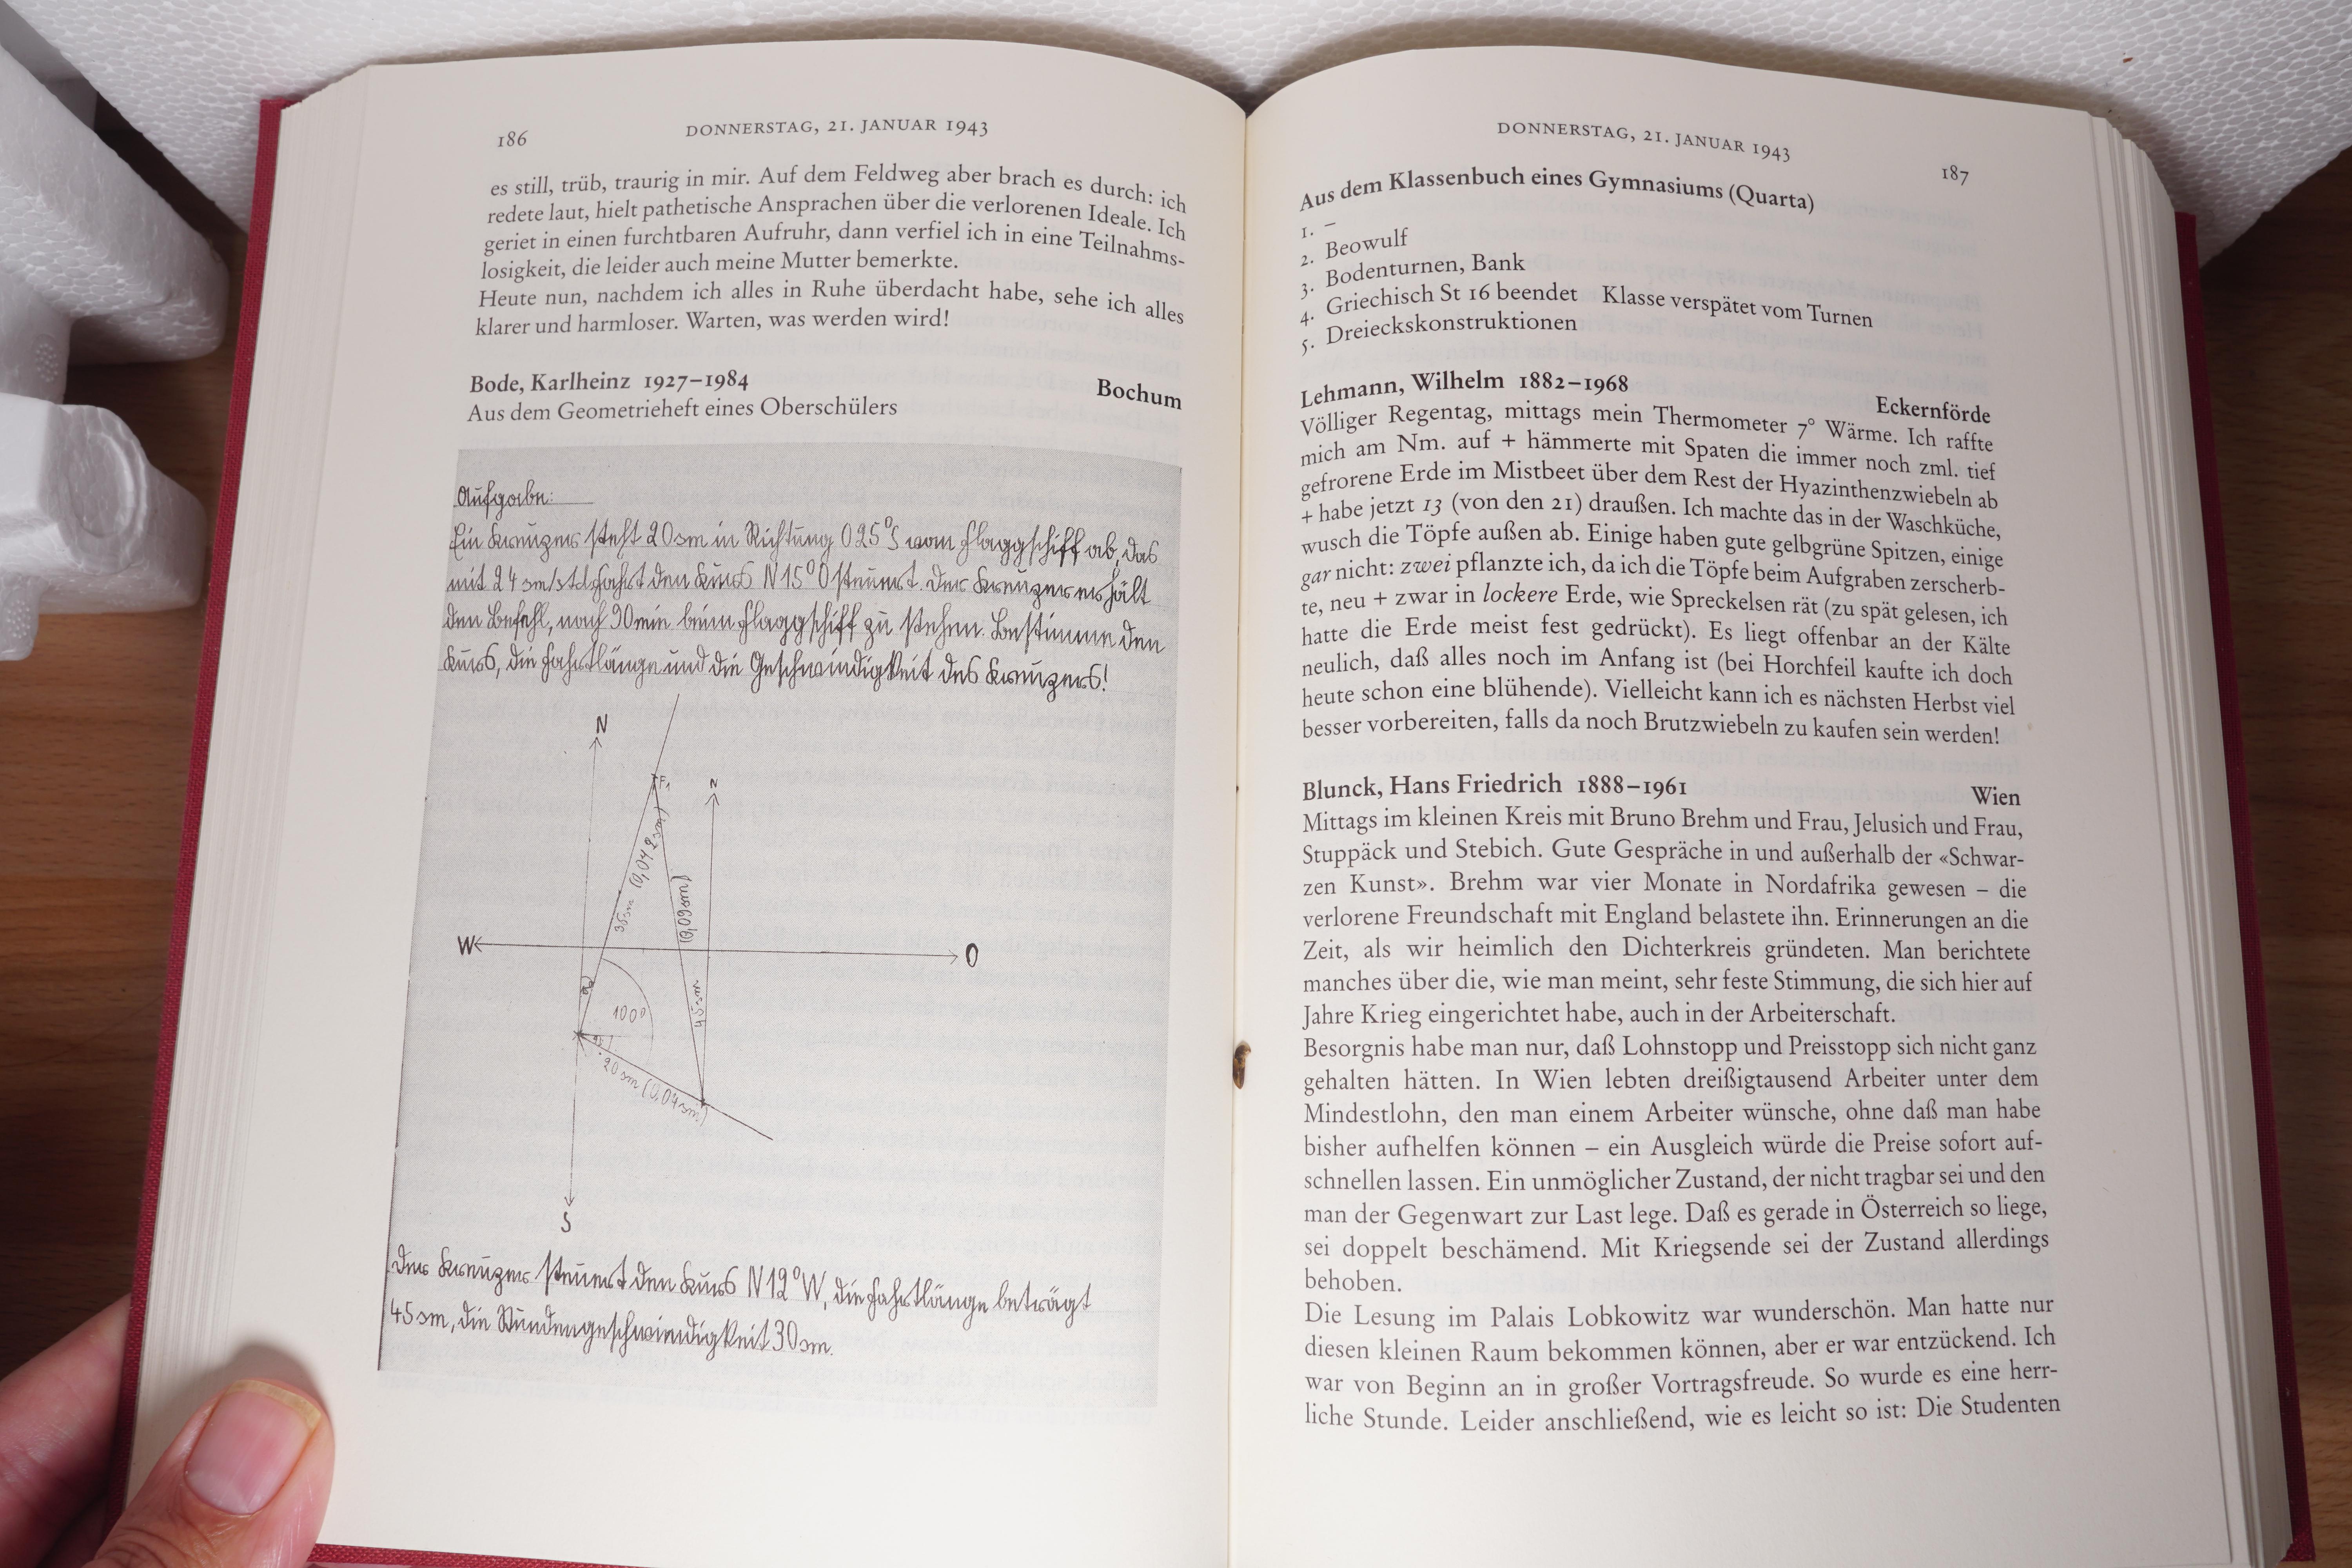 186
DONNERSTAG, 21. JANUAR 1943
es still, trüb, traurig in mir. Auf dem Feldweg aber brach es durch: ich
redete laut, hielt pathetische Ansprachen über die verlorenen Ideale. Ich
geriet in einen furchtbaren Aufruhr, dann verfiel ich in eine Teilnahms-
losigkeit, die leider auch meine Mutter bemerkte.
Heute nun, nachdem ich alles in Ruhe überdacht habe, sehe ich alles
klarer und harmloser. Warten, was werden wird!
Bode, Karlheinz 1927–1984 Bochum
Aus dem Geometrieheft eines Oberschülers
Aufgabe:
Ein Kreuzer steht 20sm in Richtung O25°S vom Flaggschiff ab, das
mit 24 sm/std fährt den Kurs N15°O steuert. Der Kreuzer erhält
den Befehl, nach 90min beim Flaggschiff zu stehen. Bestimme den
Kurs, die Fahrtlänge und die Geschwindigkeit des Kreuzers!
N
F₁
N
(0,09sm)
W
O
100°
45sm
20 sm (0,04sm)
S
Der Kreuzer steuert den Kurs N12°W, die Fahrtlänge beträgt
45sm, die Stundengeschwindigkeit 30sm.
DONNERSTAG, 21. JANUAR 1943
187
Aus dem Klassenbuch eines Gymnasiums (Quarta)
1. –
2. Beowulf
3. Bodenturnen, Bank
4. Griechisch St 16 beendet Klasse verspätet vom Turnen
5. Dreieckskonstruktionen
Lehmann, Wilhelm 1882–1968 Eckernförde
Völliger Regentag, mittags mein Thermometer 7° Wärme. Ich raffte
mich am Nm. auf + hämmerte mit Spaten die immer noch zml. tief
gefrorene Erde im Mistbeet über dem Rest der Hyazinthenzwiebeln ab
+ habe jetzt 13 (von den 21) draußen. Ich machte das in der Waschküche,
wusch die Töpfe außen ab. Einige haben gute gelbgrüne Spitzen, einige
gar nicht: zwei pflanzte ich, da ich die Töpfe beim Aufgraben zerscherb-
te, neu + zwar in lockere Erde, wie Spreckelsen rät (zu spät gelesen, ich
hatte die Erde meist fest gedrückt). Es liegt offenbar an der Kälte
neulich, daß alles noch im Anfang ist (bei Horchfeil kaufte ich doch
heute schon eine blühende). Vielleicht kann ich es nächsten Herbst viel
besser vorbereiten, falls da noch Brutzwiebeln zu kaufen sein werden!
Blunck, Hans Friedrich 1888–1961 Wien
Mittags im kleinen Kreis mit Bruno Brehm und Frau, Jelusich und Frau,
Stuppäck und Stebich. Gute Gespräche in und außerhalb der «Schwar-
zen Kunst». Brehm war vier Monate in Nordafrika gewesen – die
verlorene Freundschaft mit England belastete ihn. Erinnerungen an die
Zeit, als wir heimlich den Dichterkreis gründeten. Man berichtete
manches über die, wie man meint, sehr feste Stimmung, die sich hier auf
Jahre Krieg eingerichtet habe, auch in der Arbeiterschaft.
Besorgnis habe man nur, daß Lohnstopp und Preisstopp sich nicht ganz
gehalten hätten. In Wien lebten dreißigtausend Arbeiter unter dem
Mindestlohn, den man einem Arbeiter wünsche, ohne daß man habe
bisher aufhelfen können – ein Ausgleich würde die Preise sofort auf-
schnellen lassen. Ein unmöglicher Zustand, der nicht tragbar sei und den
man der Gegenwart zur Last lege. Daß es gerade in Österreich so liege,
sei doppelt beschämend. Mit Kriegsende sei der Zustand allerdings
behoben.
Die Lesung im Palais Lobkowitz war wunderschön. Man hatte nur
diesen kleinen Raum bekommen können, aber er war entzückend. Ich
war von Beginn an in großer Vortragsfreude. So wurde es eine herr-
liche Stunde. Leider anschließend, wie es leicht so ist: Die Studenten